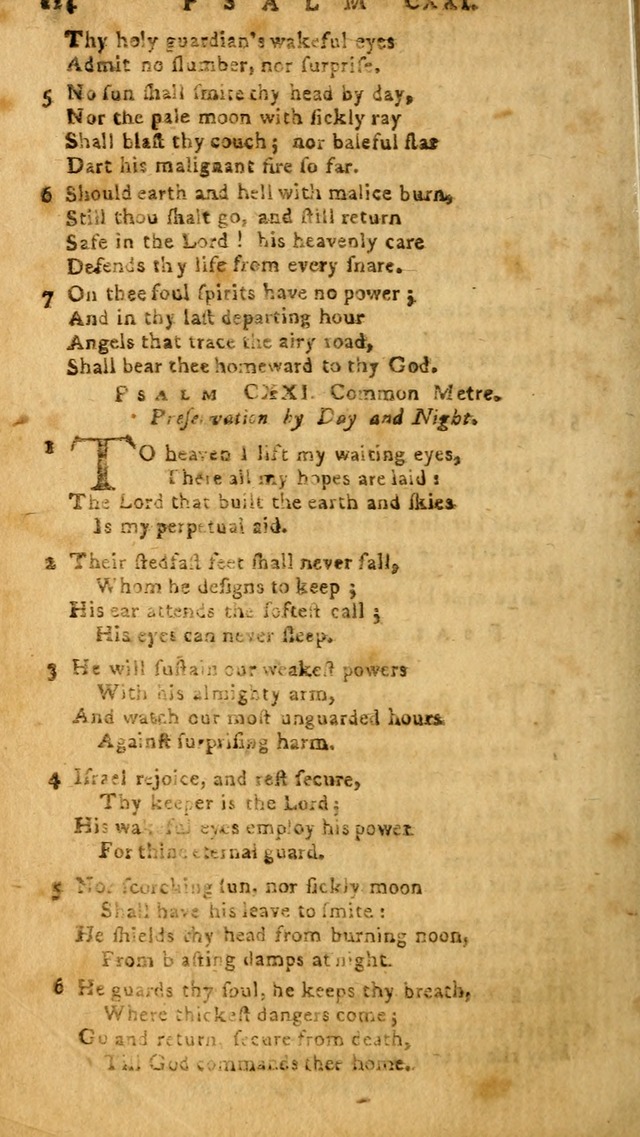 PSALM CXXI.
Thy holy guardian's wakeful eyes
Admit no ſlumber, nor ſurpriſe.
5 No ſun ſhall ſmite thy head by day,
Nor the pale moon with ſickly ray
Shall blaſt thy couch; nor baleful ſtar
Dart his malignant fire ſo far.
6 Should earth and hell with malice burn,
Still thou ſhalt go, and ſtill return
Safe in the Lord! his heavenly care
Defends thy life from every ſnare.
7 On thee foul ſpirits have no power;
And in thy laſt departing hour
Angels that trace the airy road,
Shall bear thee homeward to thy God.
PSALM CXXI. Common Metre.
Preſervation by Day and Night.
1 TO heaven I lift my waiting eyes,
There all my hopes are laid:
The Lord that built the earth and ſkies
Is my perpetual aid.
2 Their ſtedfaſt feet ſhall never fall,
Whom he deſigns to keep;
His ear attends the ſofteſt call;
His eyes can never ſleep.
3 He will ſuſtain our weakeſt powers
With his almighty arm,
And watch our moſt unguarded hours
Againſt ſurpriſing harm.
4 Iſrael rejoice, and reſt ſecure,
Thy keeper is the Lord;
His wakeful eyes employ his power
For thine eternal guard.
5 Nor ſcorching ſun, nor ſickly moon
Shall have his leave to ſmite:
He ſhields thy head from burning noon,
From blaſting damps at night.
6 He guards thy ſoul, he keeps thy breath,
Where thickeſt dangers come;
Go and return, ſecure from death,
Till God commands thee home.